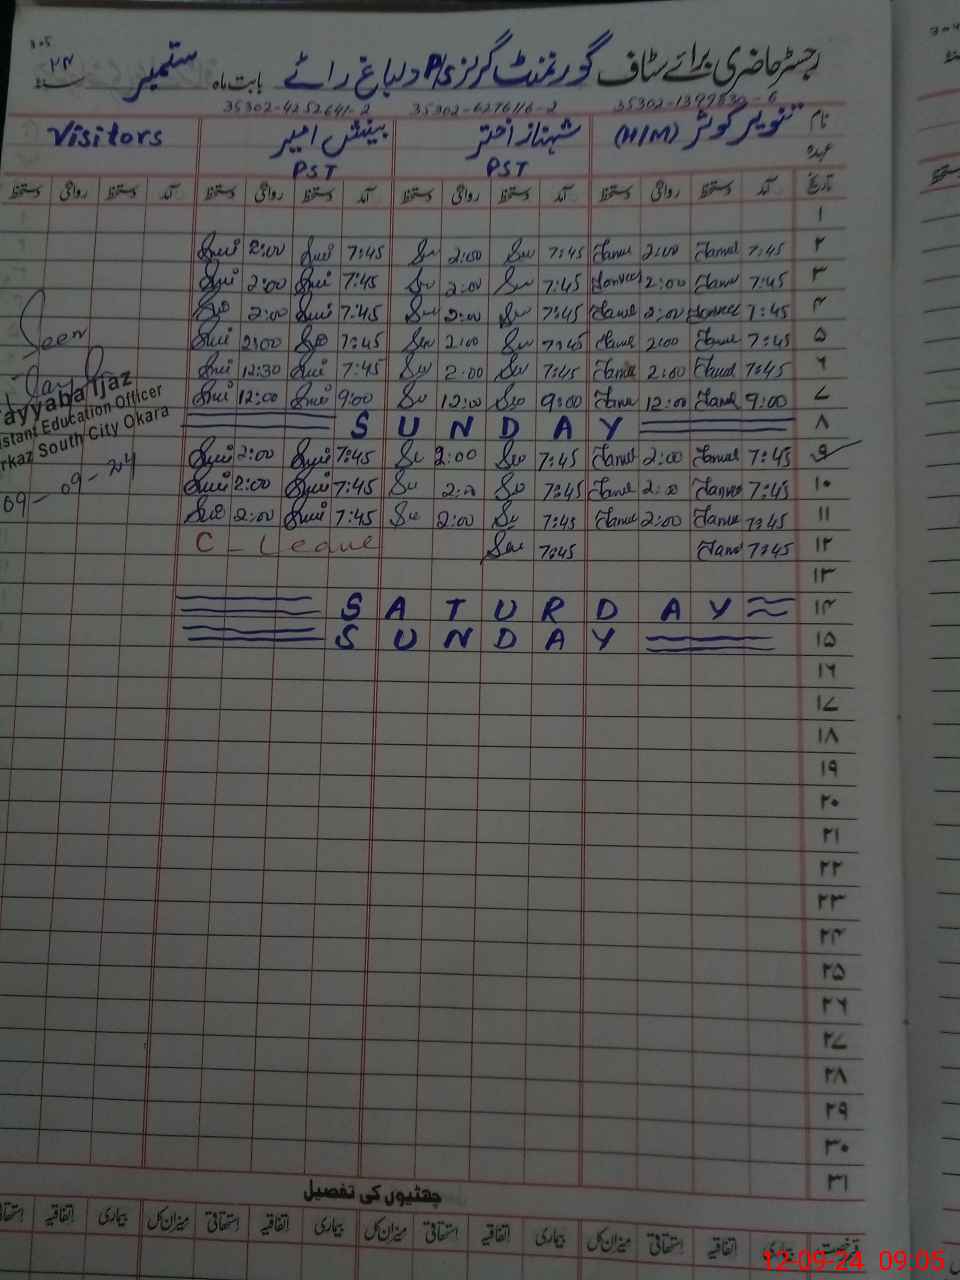 ۳۰۵
رجسٹر حاضری برائے سٹاف گورنمنٹ گرلز P/S دلباغ رائے بابت ماہ ستمبر سنہ ۲۴
35302-4252641-2 35302-6276116-2
نام تنویر کوثر (H/M) شہناز اختر بینش امیر Visitors
عہدہ PST PST
تاریخ آمد دستخط روانگی دستخط آمد دستخط روانگی دستخط آمد دستخط روانگی دستخط آمد دستخط روانگی دستخط
۱
۲ 7:45 2:00 7:45 2:00 7:45 2:00
۳ 7:45 2:00 7:45 2:00 7:45 2:00
۴ 7:45 2:00 7:45 2:00 7:45 2:00
۵ 7:45 2:00 7:45 2:00 7:45 2:00
۶ 7:45 2:00 7:45 2:00 7:45 12:30
۷ 9:00 12:00 9:00 12:00 9:00 12:00
۸ SUNDAY
۹ 7:45 2:00 7:45 2:00 7:45 2:00
۱۰ 7:45 2:00 7:45 2:00 7:45 2:00
۱۱ 7:45 2:00 7:45 2:00 7:45 2:00
۱۲ 7:45 7:45 C - Leave
۱۳
۱۴ SATURDAY
۱۵ SUNDAY
۱۶
۱۷
۱۸
۱۹
۲۰
۲۱
۲۲
۲۳
۲۴
۲۵
۲۶
۲۷
۲۸
۲۹
۳۰
۳۱
Seen
ayyaba Ijaz
istant Education Officer
rkaz South City Okara
09-09-24
چھٹیوں کی تفصیل
رخصت بیماری اتفاقیہ استحقاقی میزان کل بیماری اتفاقیہ استحقاقی میزان کل بیماری اتفاقیہ استحقاقی میزان کل بیماری اتفاقیہ
12-09-24 09:05